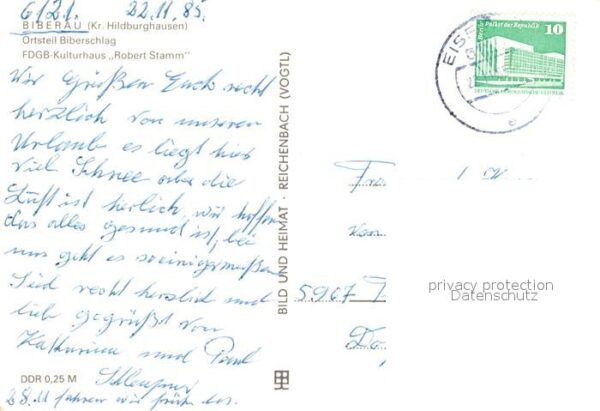 6/21. 22.11.85.
BIBERAU (Kr. Hildburghausen)
Ortsteil Biberschlag
FDGB-Kulturhaus „Robert Stamm"
Wir Grüßen Euch recht
herzlich von unseren
Urlaub es liegt hier
viel Schnee aber die
Luft ist herlich, wir hoffen
das alles gesund ist, bei
uns geht es soeinigermaßen
Seid recht herzlich und
lieb gegrüßt von
Katharina und Paul
DDR 0,25 M
28.11 fahren wir früh los.
BILD UND HEIMAT · REICHENBACH (VOGTL)
EISF
10
Palast der Republik
Fr
von
5907 T
Do
privacy protection
Datenschutz